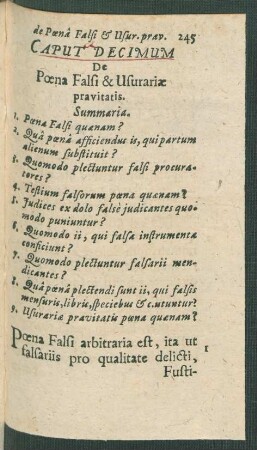 de Pœnâ Falsi & Usur. prav. 245
CAPUT DECIMUM
De
Pœna Falsi & Usurariæ
pravitatis.
Summaria.
1. Pœna Falsi quænam?
2. Quâ pœnâ afficiendus is, qui partum
alienum substituit?
3. Quomodo plectuntur falsi procura-
tores?
4. Testium falsorum pœna quænam?
5. Judices ex dolo falsè judicantes quo-
modo puniuntur?
6. Quomodo ii, qui falsa instrumenta
conficiunt?
7. Quomodo plectuntur falsarii men-
dicantes?
8. Quâ pœnâ plectendi sunt ii, qui falsis
mensuris, libris, speciebus & c. utuntur?
9. Usurariæ pravitatis pœna quænam?
Pœna Falsi arbitraria est, ita ut 1
falsariis pro qualitate delicti,
Fusti-